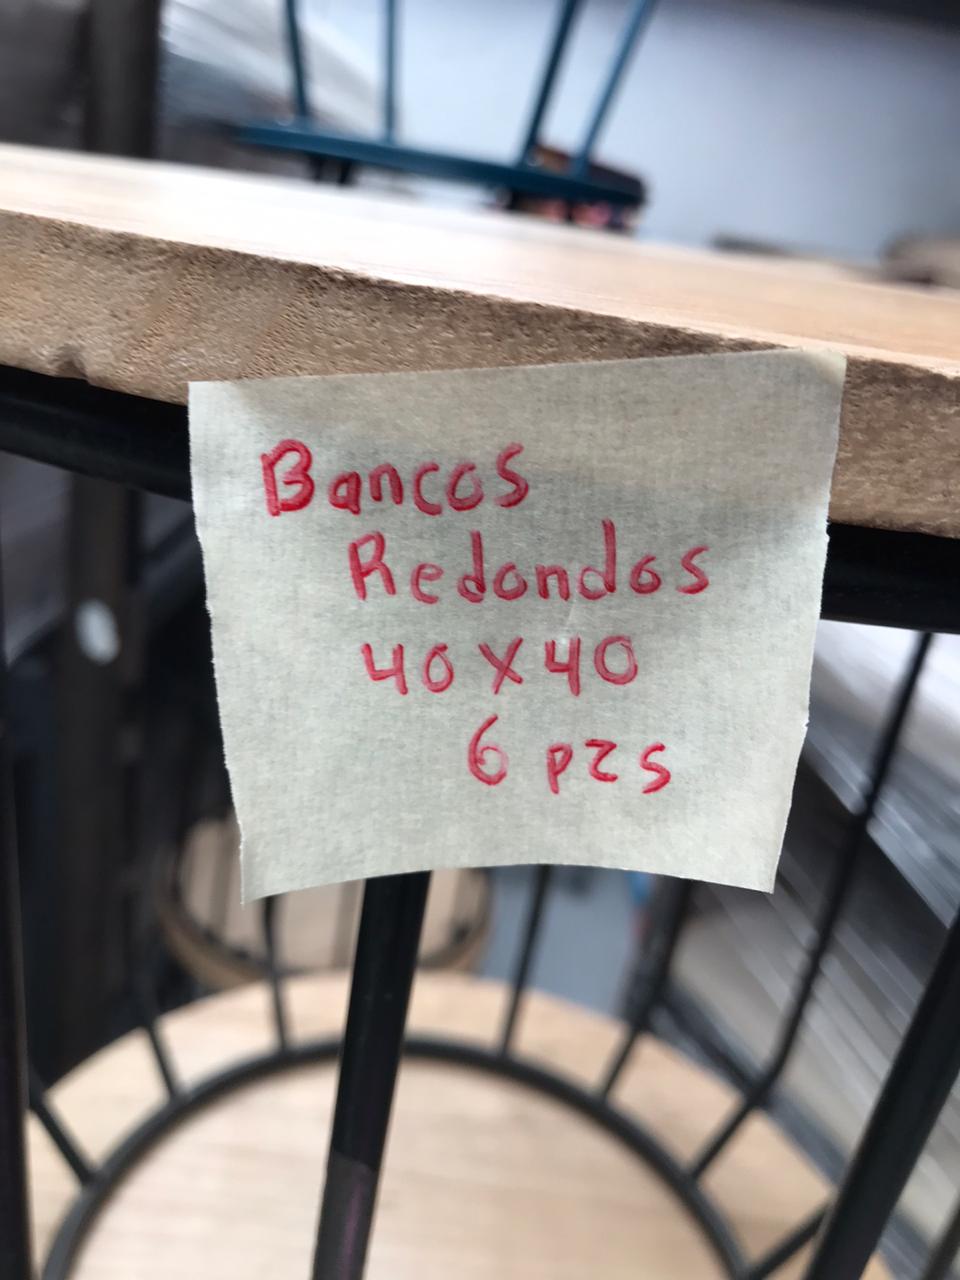 Bancos
Redondos
40X40
6 pzs